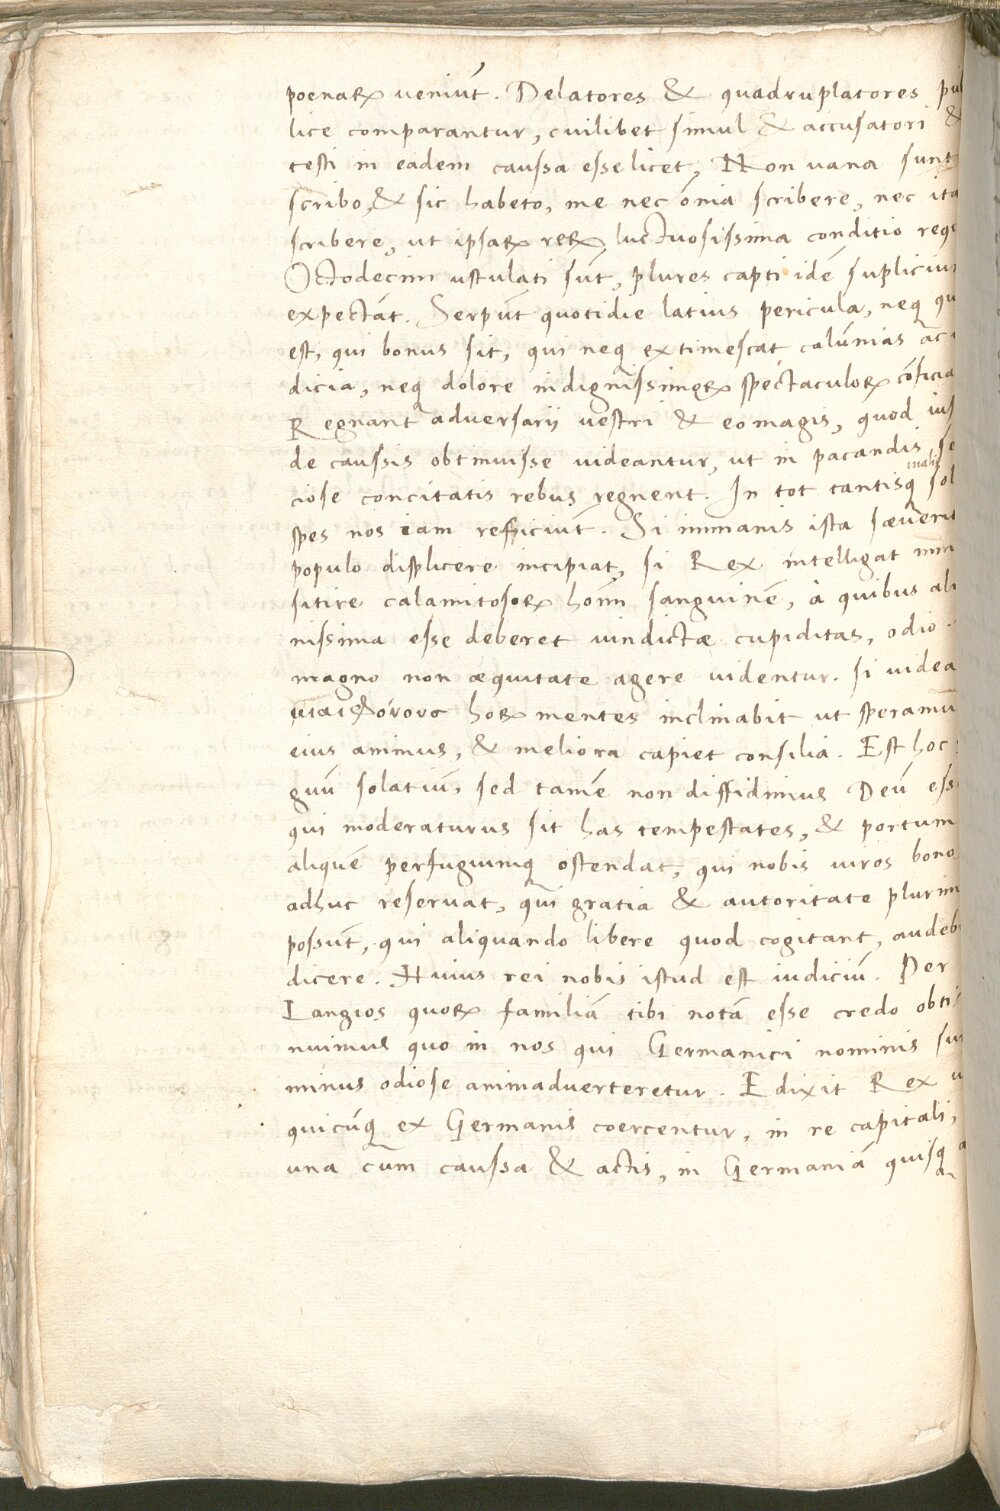 poenaꝝ veniūt. Delatores & quadruplatores pub
lice comparantur, cuilibet simul & accusatori &
testi in eadem caussa esse licet, Non uana sunt
scribo, & sic habeto, me nec ōnia scribere, nec ita
scribere, ut ipsaꝝ rerꝝ luctuosissima conditio requ
Octodecim ustulati sūt, plures capti idē supliciu
expectāt. Serpūt quotidie latius pericula, neq̃ qu
est, qui bonus sit, qui neq̃ extimescat calūnias ac
dicia, neq̃ dolore indignissimoꝝ spectaculoꝝ cōficia
Regnant adversarii vestri & eo magis, quod ius
de caussis obtinuisse uideantur, ut in pacandis se
ciose concitatis rebus regnent. In tot tantisq̃ malis sol
spes nos iam reficiūt. Si immanis ista sæuerit
populo displicere incipiat, si Rex intelligat nim
sitire calamitosoꝝ homī sanguinē, à quibus ali
nissima esse deberet vindictæ cupiditas, odio
magno non æquitate agere uidentur. si uidea
μιαιφόνους hoꝝ mentes inclinabit ut speramus
eius animus, & meliora capiet consilia. Est hoc
guū solatiū, sed tamē non diffidimus Deū esse
qui moderaturus sit has tempestates, & portum
aliquē perfugiumq̃ ostendat, qui nobis uiros bono
adhuc reservat, qui gratia & autoritate plurim
possūt, qui aliquando libere quod cogitant, audeb
dicere. Huius rei nobis istud est iudiciū. Per
Langios quoꝝ familiā tibi notā esse credo obti
nuimus quo in nos qui Germanici nominis su
minus odiose animadverteretur. Edixit Rex u
quicūq̃ ex Germanis coercentur, in re capitali,
una cum caussa & actis, in Germaniā quisq̃ a